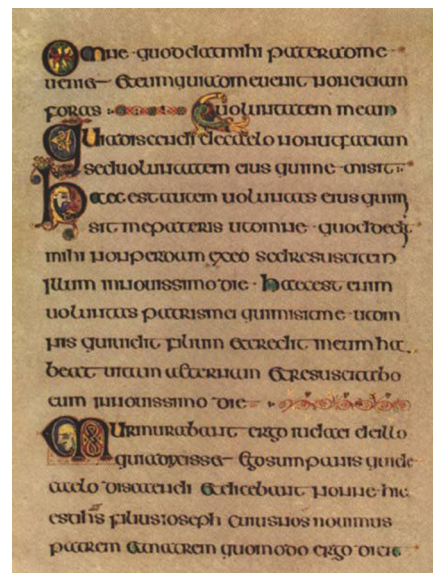 Omne · quod dat mihi pater ad me ·
ueniet et eum qui ad me uenit non eiciam
foras
uoluntatem meam
Quia discendi de caelo non ut faciam
sed uoluntatem eius qui me · misit
haec est autem uoluntas eius qui m
sit me patris ut omne · quod dedit
mihi non perdam ex eo sed resuscitem
illum in nouissimo die · haec est enim
uoluntas patris mei qui missit me · ut om
nis qui uidit filium et credit in eum ha
beat uitam aeternam et resuscitabo
eum in nouissimo die
Murmurabant ergo iudaei de illo
quia dixisset ego sum panis qui de
caelo discendi et dicebant nonne · hic
est ihs filius ioseph cuius nos nouimus
patrem et matrem quomodo ergo dicit